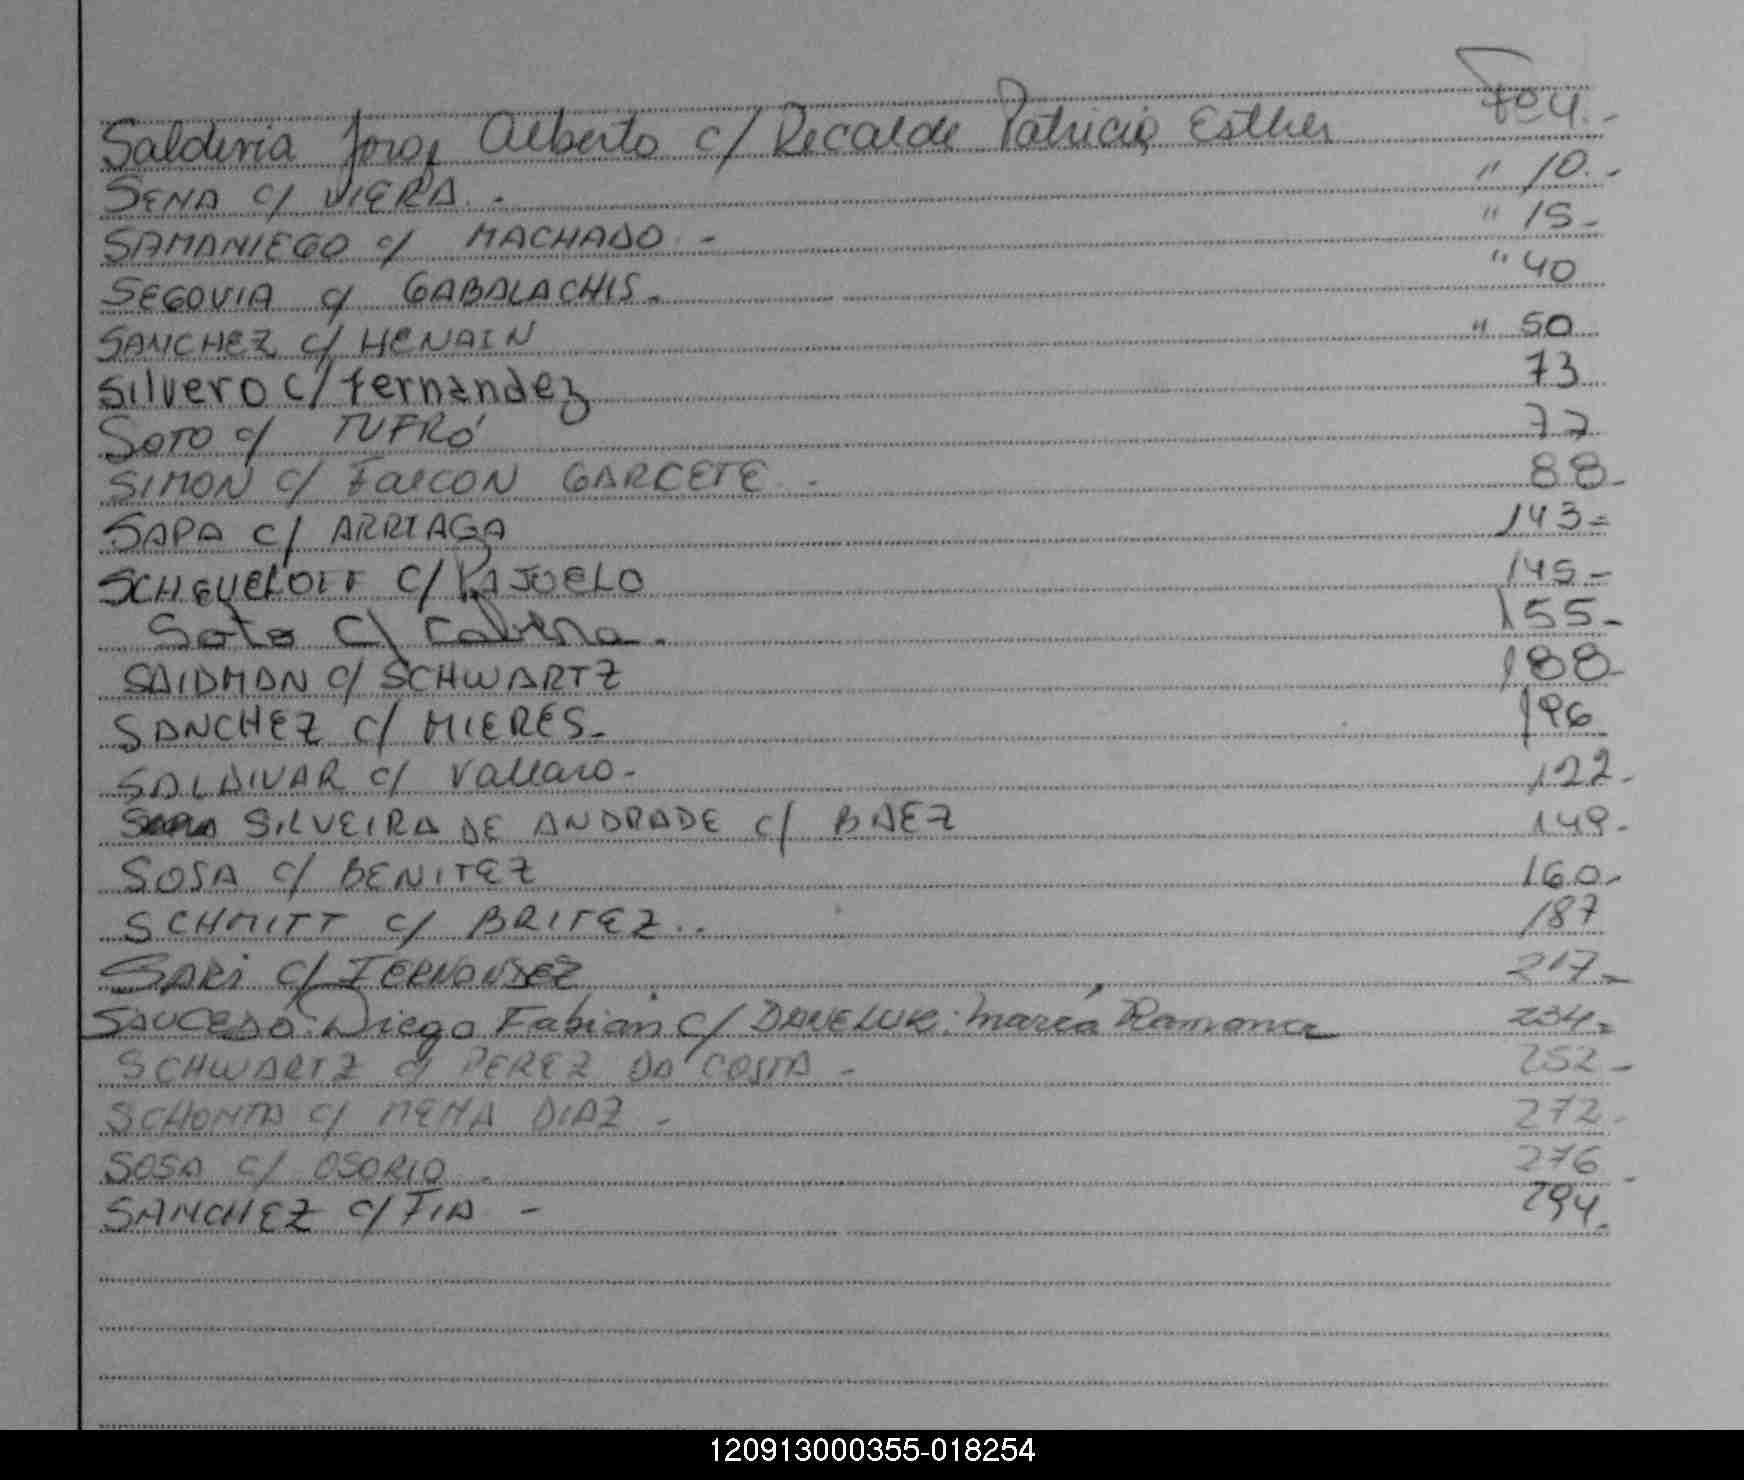 Salderia Jorge Alberto c/ Recalde Patricia Esther Fº 4.-
SENA c/ VIERA.- " 10.-
SAMANIEGO c/ MACHADO.- " 15-
SEGOVIA c/ GABALACHIS.- " 40
SANCHEZ c/ HENAIN " 50
Silvero c/ Fernandez 73
SOTO c/ TUFRÓ 77
SIMON c/ FALCON GARCETE.- 88-
SAPA c/ ARRIAGA 143=
C/ PAJUELO 145-
Soto C/ Cabrera. 155-
SAIDMAN c/ SCHWARTZ 188-
SANCHEZ c/ MIERES.- 196
SALDIVAR c/ Vallaro.- 122.-
SILVEIRA DE ANDRADE c/ BAEZ 149.-
SOSA c/ BENITEZ 160.-
SCHMITT c/ BRITEZ.. 187
SARI c/ FERNANDEZ 217.-
SAUCEDO Diego Fabian C/ DANELUK María Ramona 234=
SCHWARTZ c/ PEREZ DA COSTA.- 252-
c/ MENA DIAZ.- 272-
SOSA c/ OSORIO.- 276.-
SANCHEZ c/ FIA - 294.
120913000355-018254